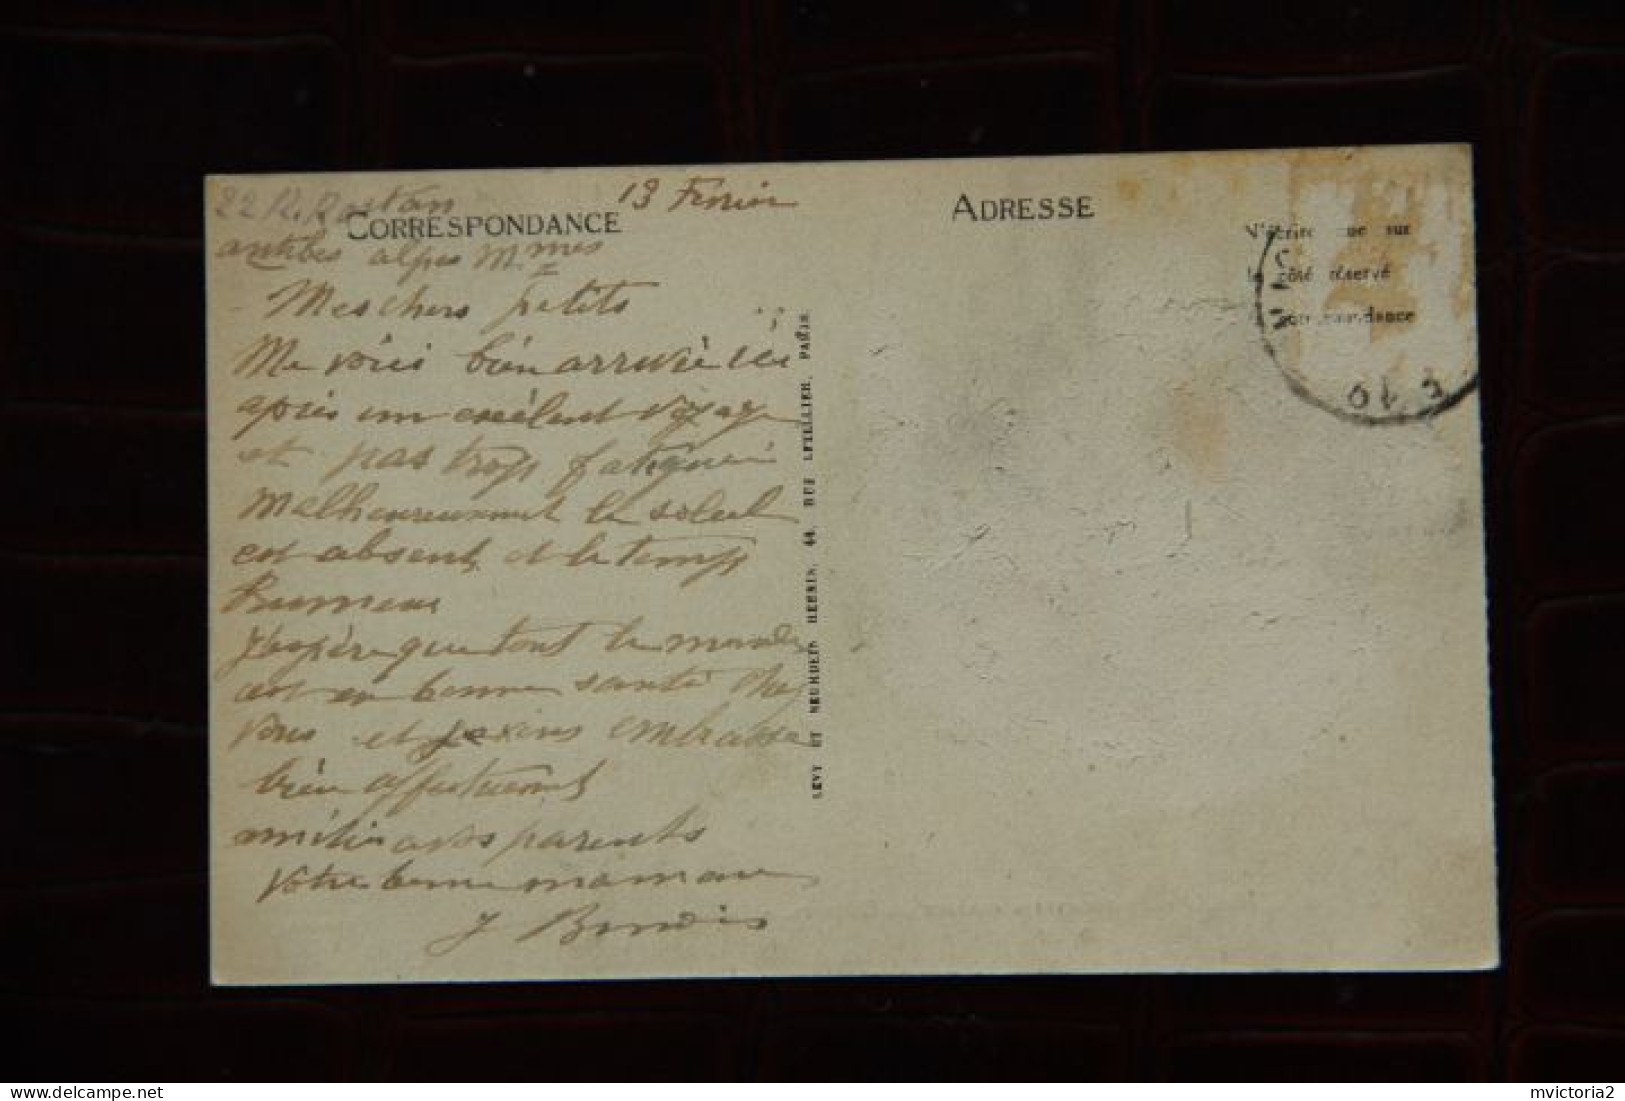 22 R. Rostan
13 Février
CORRESPONDANCE
ADRESSE
antibes alpes Mmes
N'écrire que sur
le côté réservé
correspondance
Mes chers petits
Me voici bien arrivée ici
après un exélent voyage
et pas trop fatiguée
Malheureusement le soleil
est absent et le temps
Brumeux
J'espère que tout le monde
est en bonne santé chez
vous et embrasse
bien affectueusement
amitiés a vos parents
Votre bonne maman
J
LEVY ET NEURDEIN RÉUNIS, 44, RUE LETELLIER, PARIS.
delcampe.net
mvictoria2